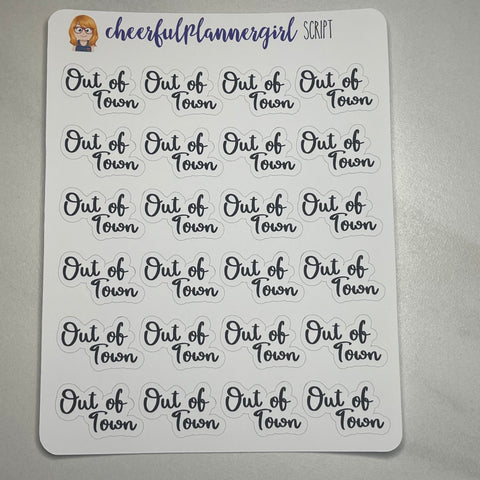 cheerfulplannergirl SCRIPT
Out of Out of Out of Out of
Town Town Town Town
Out of Out of Out of Out of
Town Town Town Town
Out of Out of Out of Out of
Town Town Town Town
Out of Out of Out of Out of
Town Town Town Town
Out of Out of Out of Out of
Town Town Town Town
Out of Out of Out of Out of
Town Town Town Town